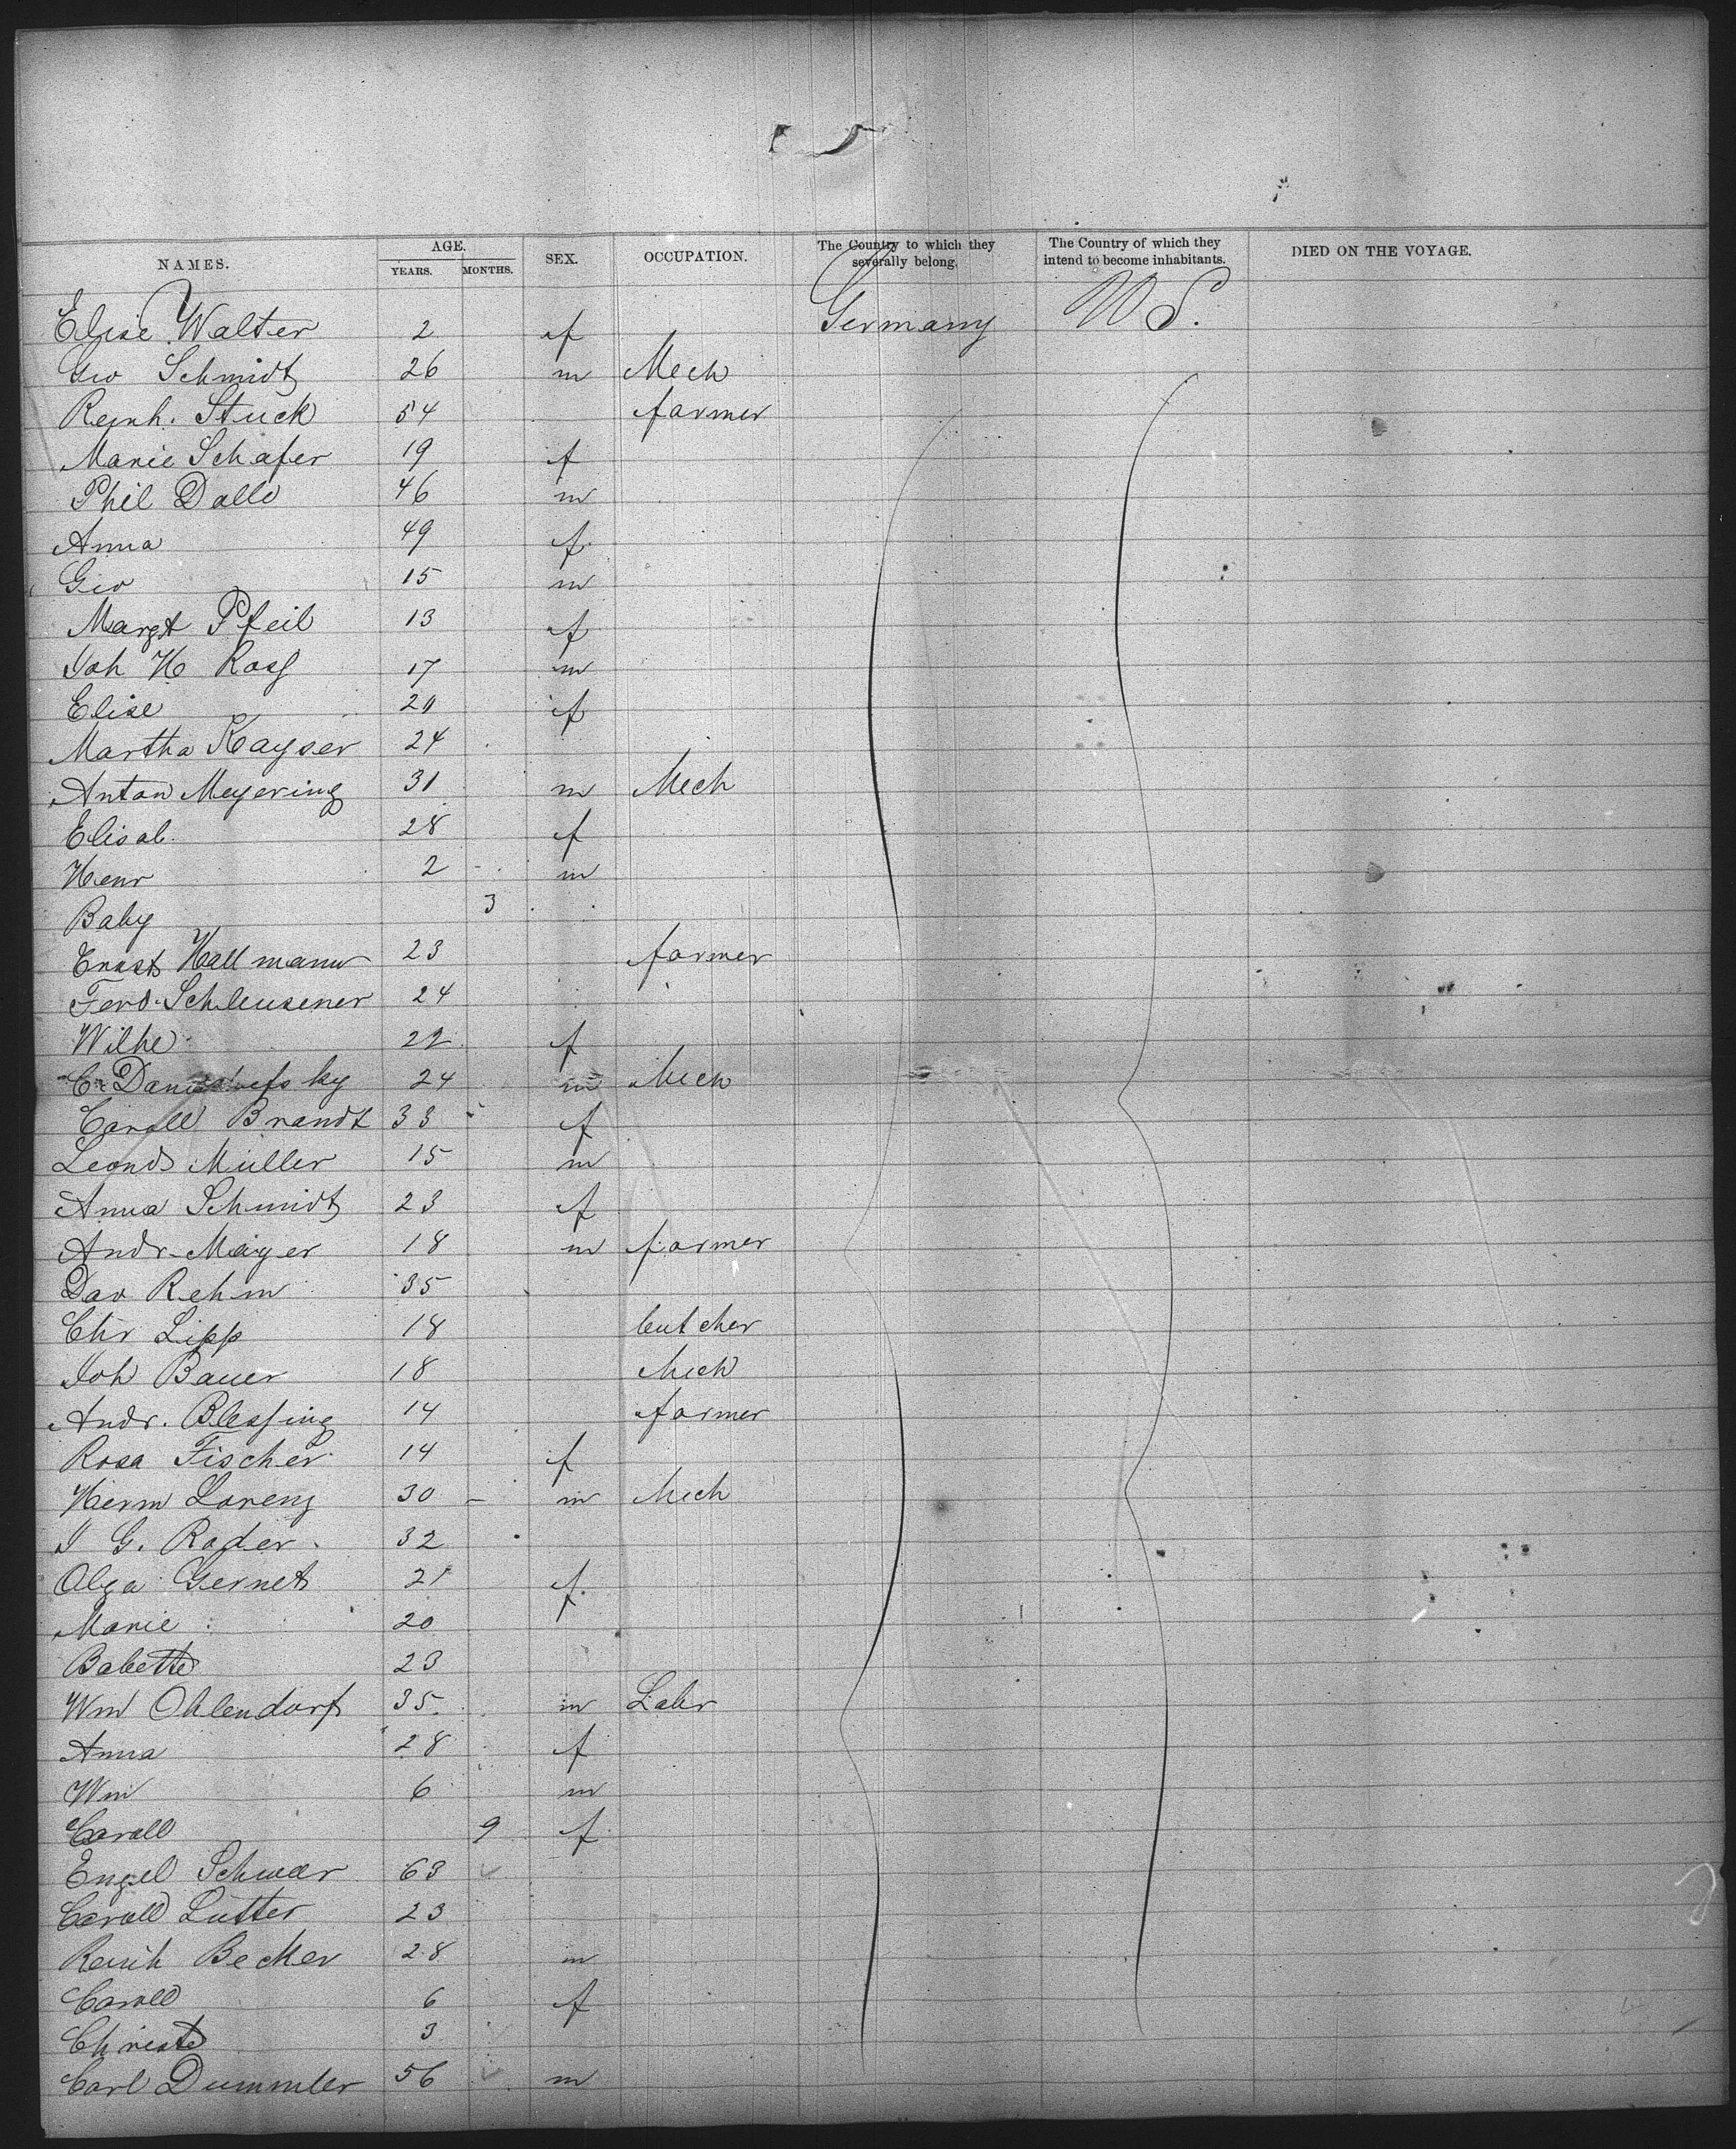 NAMES. AGE. YEARS. MONTHS. SEX. OCCUPATION. The Country to which they severally belong. The Country of which they intend to become inhabitants. DIED ON THE VOYAGE.
Elise Walter 2 f Germany U S.
Geo Schmidt 26 m Mech
Reinh. Stuck 54 farmer
Marie Schafer 19 f
Phil Dalle 46 m
Anna 49 f
Geo 15 m
Margt Pfeil 13 f
Joh H Rosf 17 m
Elise 20 f
Martha Kayser 24
Anton Meyering 31 m Mech
Elisab. 28 f
Henr 2 m
Baby 3
Ernst Hallmann 23 farmer
Ferd. Schleusener 24
Wilhe 22 f
C. 24 m Mech
Caroll Brandt 33 f
Leond Müller 15 m
Anna Schmidt 23 f
Andr. Mayer 18 m farmer
Dav Rehm 35
Chr Lipp 18 butcher
Joh Bauer 18 Mech
Andr. Blessing 14 farmer
Rosa Fischer 14 f
Herm Lorenz 30 m Mech
J G. Roder 32
Olga Gernet 21 f
Marie 20
Babette 23
Wm Ohlendorf 35 m Labr
Anna 28 f
Wm 6 m
Caroll 9 f
Engel Schwær 63
Caroll Lutter 23
Reinh Becker 28 m
Caroll 6 f
Christe 3
Carl Dummler 56 m